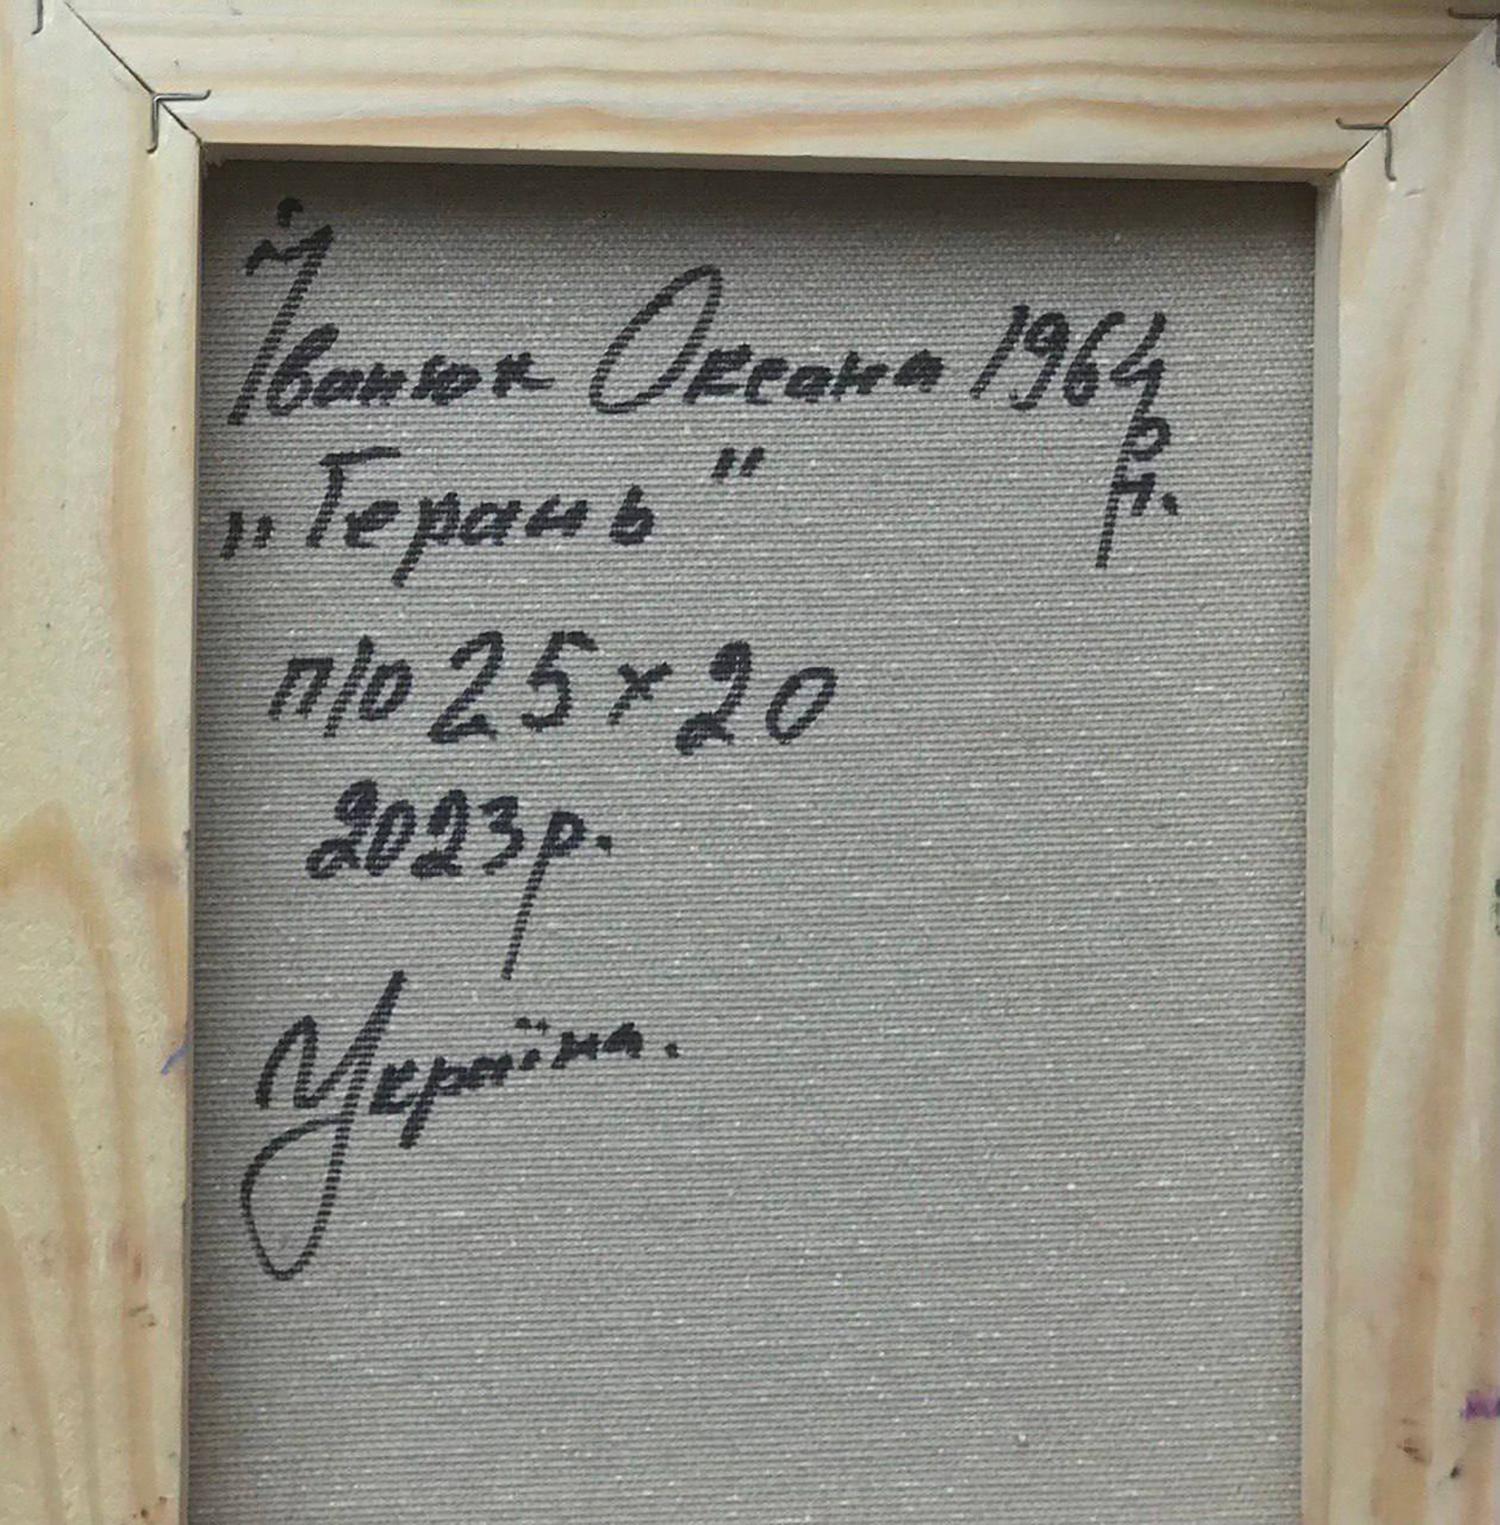 Іванюк Оксана 1964 р.н.
„Герань"
п/о 25 х 20
2023р.
Україна.